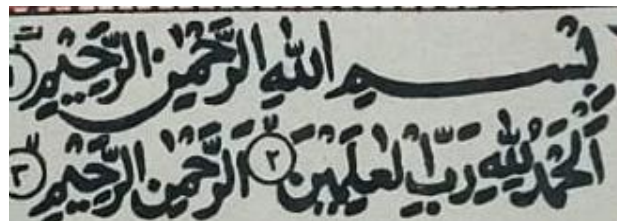 بِسْمِ اللهِ الرَّحْمٰنِ الرَّحِيْمِ ١
اَلْحَمْدُ لِلّٰهِ رَبِّ الْعٰلَمِيْنَ ٢ الرَّحْمٰنِ الرَّحِيْمِ ٣